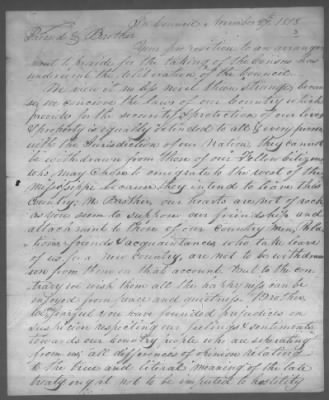 In Council November 27. 1818
Friend & Brother
Your proposition to an arrange-
ment to provide for the taking of the Census has
underwent the deliberation of the Council.
We view it no less novel than strange, becau-
se, we conceive the laws of our Country which
provides for the security & protection of our lives
& property is equally extended to all & every person
with the Jurisdiction of our Nation. They cannot
be withdrawn from those of our fellow Citizens
who, may Choose to emigrate to the west of the
Mississippi because they intend to leave this
Country: No Brother our hearts are not of rock
as you seem to suppose our friendship and
attachment to those of our Country men, Rela-
tions friends & acquaintances, who take leave
of us for a new Country, are not to be withdrawn
from them on that account. But to the con-
trary we wish them all the happiness can be
enjoyed from peace and quietness. Brother
We fearful you have founded prejudices on
suspicion respecting our feelings & sentiments
towards our Country people who are separating
from us, all differences of opinion relating
to the true and literal meaning of the late
treaty ought not to be imputed to hostility